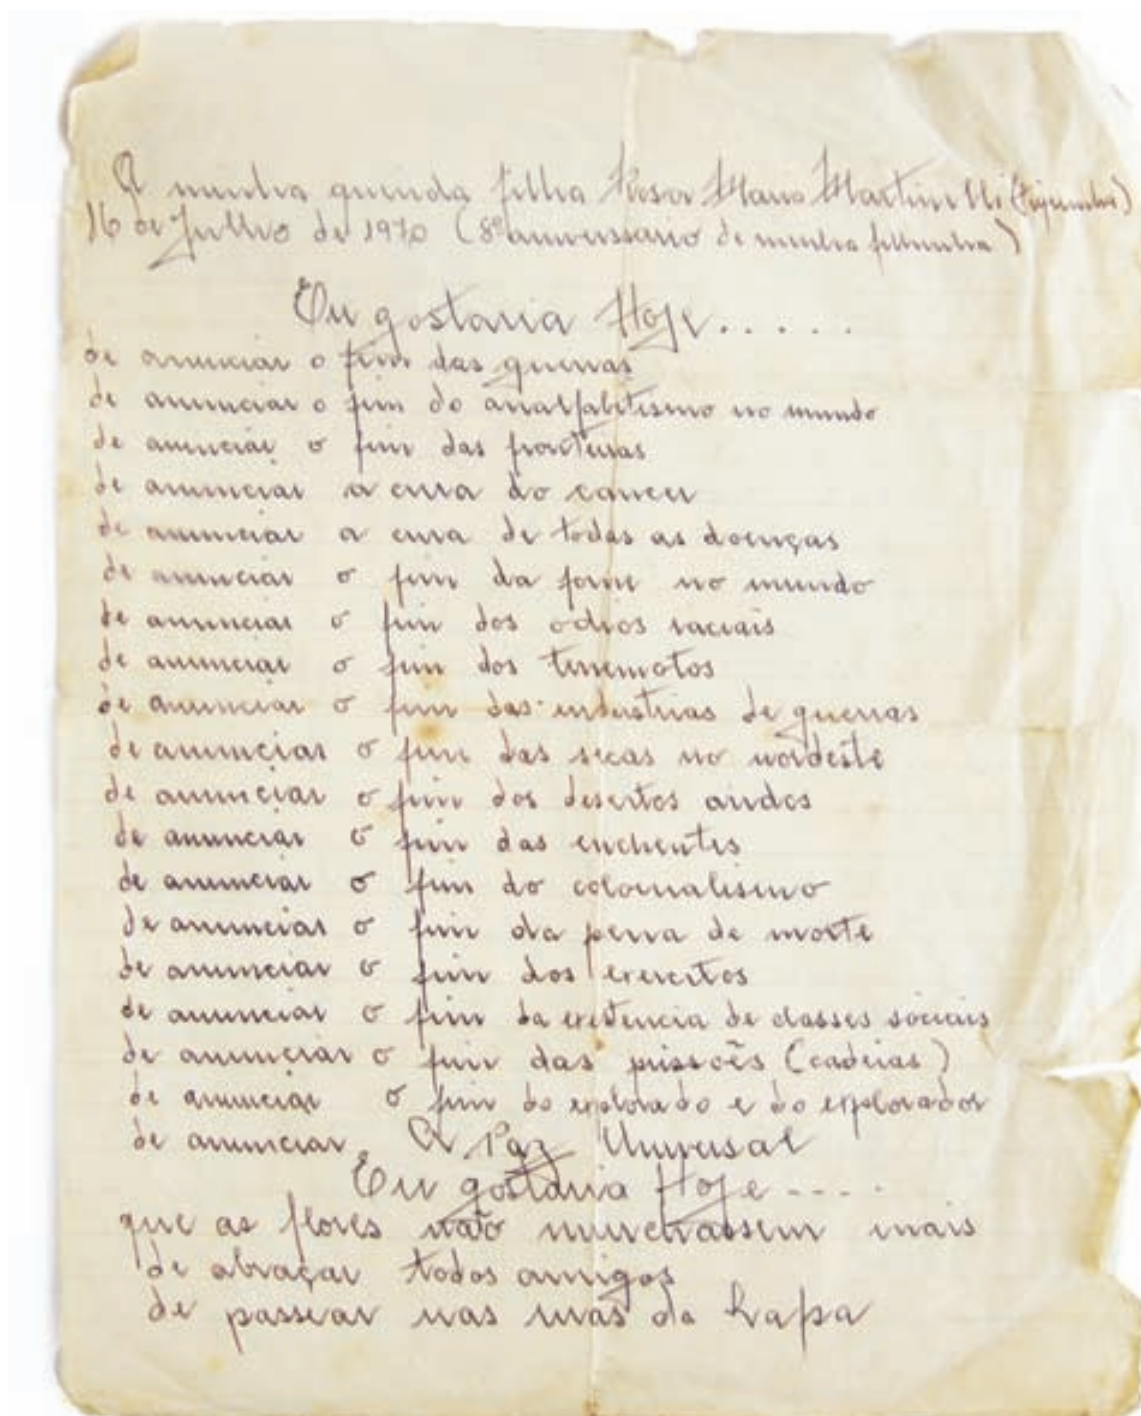 A minha querida filha Rosa Maria Martinelli
16 de Julho de 1970 (8º aniversario de minha filhinha)
Eu gostaria Hoje.....
de anunciar o fim das guerras
de anunciar o fim do analfabetismo no mundo
de anunciar o fim das fronteiras
de anunciar a cura do cancer
de anunciar a cura de todas as doenças
de anunciar o fim da fome no mundo
de anunciar o fim dos odios raciais
de anunciar o fim dos terremotos
de anunciar o fim das industrias de guerras
de anunciar o fim das secas no nordeste
de anunciar o fim dos desertos aridos
de anunciar o fim das enchentes
de anunciar o fim do colonialismo
de anunciar o fim da pena de morte
de anunciar o fim dos exercitos
de anunciar o fim da existencia de classes sociais
de anunciar o fim das prissões (cadeias)
de anunciar o fim do explorado e do explorador
de anunciar A Paz Universal
Eu gostaria Hoje----
que as flores não murchassem mais
de abraçar todos amigos
de passear nas ruas da Lapa